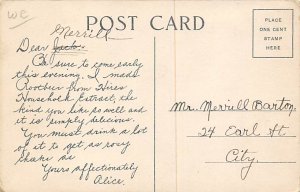 WC
POST CARD
PLACE
ONE CENT
STAMP
HERE
Merrill
Dear Jack.
Be sure to come early
this evening. I made
Rootbeer from Hires
Household Extract, the
kind you like so well and
it is simply delicious.
You must drink a lot
of it to get as rosy
cheeks as
Yours affectionately
Alice.
Mr. Merrill Barton,
24 Earl St
City.